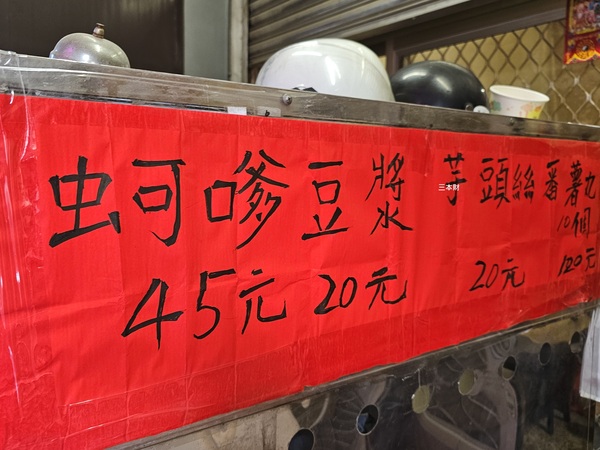 蚵嗲 豆漿 芋頭絲 番薯丸
10個
45元 20元 20元 120元
三本財